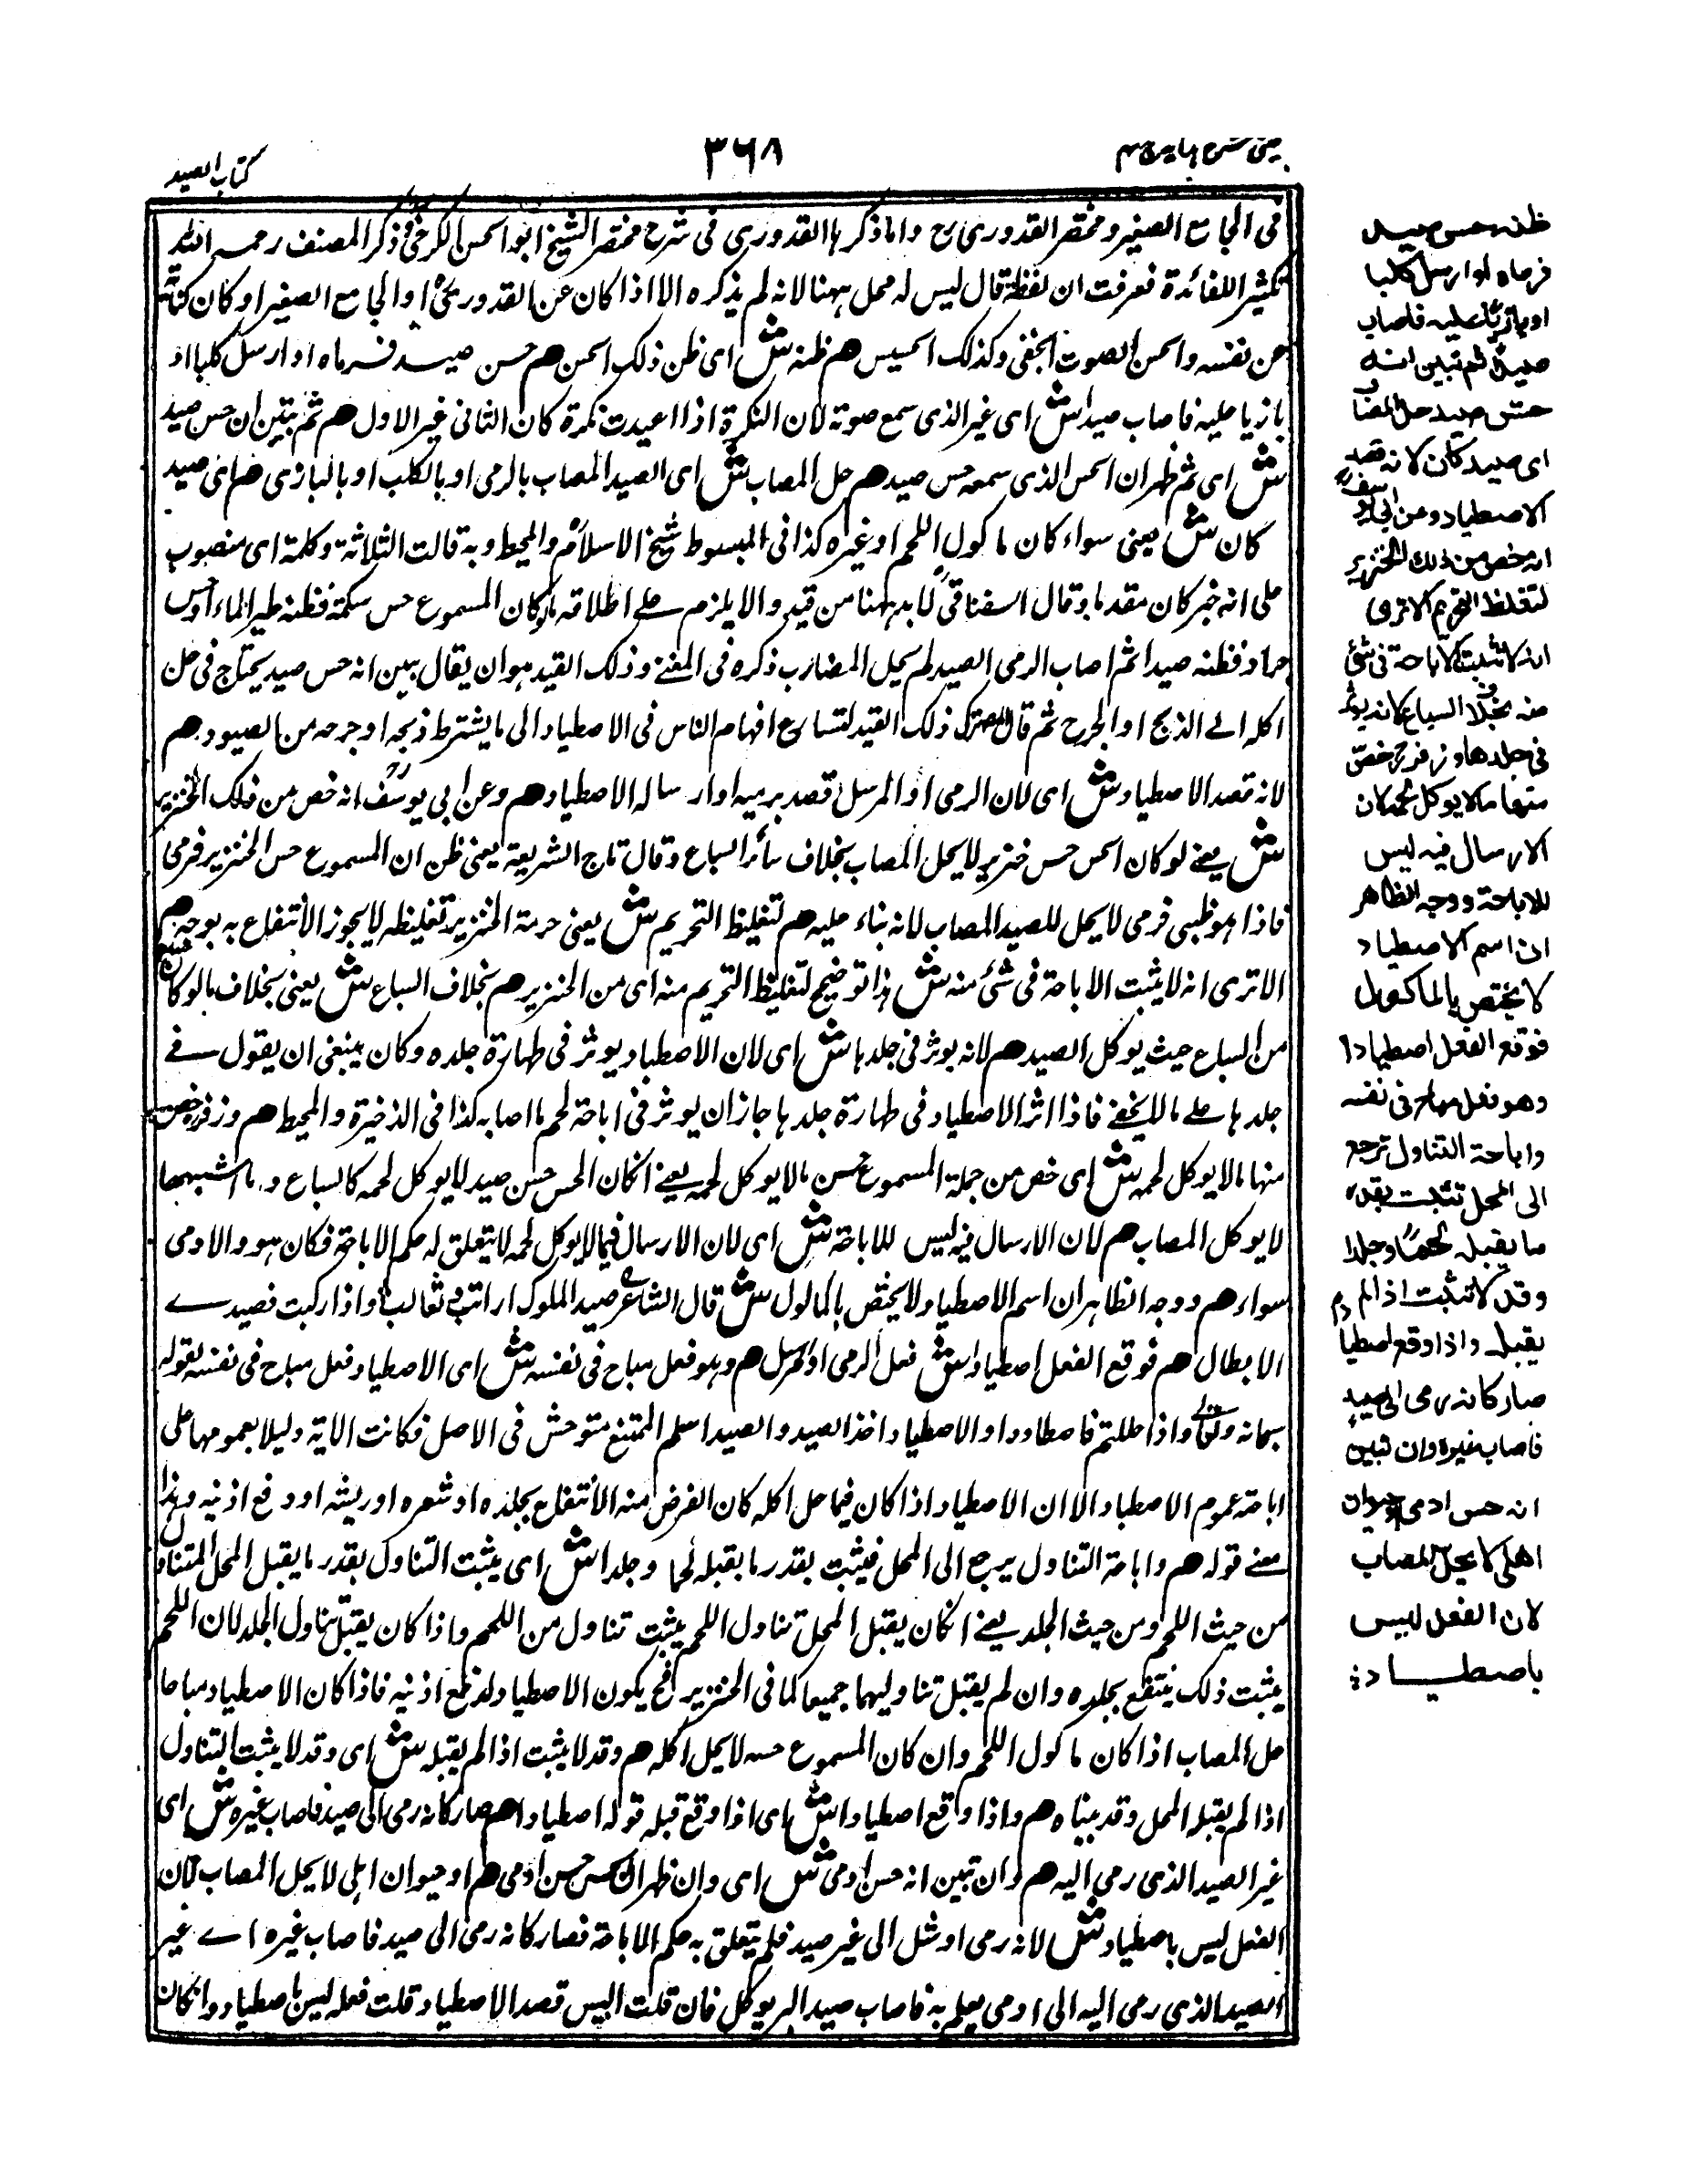 كتاب الصيد
٣٦٨
عينى شرح هدايه ج ٤
فى الجامع الصغير ومختصر القدورى رح وانما ذكرها القدورى فى شرح مختصر الشيخ ابو الحسن الكرخى فذكر المصنف رحمه الله
تكثير اللفائدة فعرفت ان لفظة قال ليس له محمل ههنا لانه لم يذكره الا اذا كان عن القدورى او الجامع الصغير او كان كناية
عن نفسه والحس الصوت الخفى وكذلك الحسيس هم ظنه ش اى ظن ذلك الحس هم حس صيد فرماه او ارسل كلبا او
بازيا عليه فاصاب صيدا ش اى غير الذى سمع صوته لان النكرة اذا اعيدت نكرة كان الثانى غير الاول هم ثم تبين ان حس صيد
ش اى ثم ظهر ان الحس الذى سمعه حس صيد هم حل المصاب ش اى الصيد المصاب بالرمى او بالكلب او بالبازى هم اى صيد
كان ش يعنى سواء كان ماكول اللحم او غيره كذا فى المبسوط شيخ الاسلام والمحيط وبه قالت الثلاثة وكلمة اى منصوب
على انه خبر كان مقدما وقال السغناقى لا بد ههنا من قيد والا يلزم على اطلاقه ما لو كان المسموع حس سمكة فظنه طير الماء او حس
جراد فظنه صيدا ثم اصاب الرمى الصيد لم يحل المضارب ذكره فى المغنى وذلك القيد هو ان يقال تبين انه حس صيد يحتاج فى حل
اكله الى الذبح او الجرح ثم قال المصنف ترك ذلك القيد لتسارع افهام الناس فى الاصطياد الى ما يشترط ذبحه او جرحه من الصيود هم
لانه قصد الاصطياد ش اى لان الرمى او المرسل قصد برميه او ارساله الاصطياد هم وعن ابى يوسف انه خص من ذلك الخنزير
ش يعنى لو كان الحس حس خنزير لا يحل المصاب بخلاف سائر السباع وقال تاج الشريعة يعنى ظن ان المسموع حس الخنزير فرمى
فاذا هو ظبى فرمى لا يحل للصيد المصاب لانه بناء عليه هم لتغليظ التحريم ش يعنى حرمة الخنزير تغليظه لا يجوز الانتفاع به بوجه هم
الا ترى انه لا يثبت الاباحة فى شئ منه ش هذا توضيح لتغليظ التحريم منه اى من الخنزير هم بخلاف السباع ش يعنى بخلاف ما لو كان
من السباع حيث يوكل الصيد هم لانه يوثر فى جلدها ش اى لان الاصطياد يوثر فى طهارة جلده وكان ينبغى ان يقول فى
جلدها على ما لا يخفى فاذا اثر الاصطياد فى طهارة جلدها جاز ان يوثر فى اباحة لحم ما اصابه كذا فى الذخيرة والمحيط هم وزفر خص
منها ما لا يوكل لحمه ش اى خص من جملة المسموع حس ما لا يوكل لحمه يعنى ان كان الحس حس صيد لا يوكل لحمه كالسباع وما اشبهها
لا يوكل المصاب هم لان الارسال فيه ليس للاباحة ش اى لان الارسال فيما لا يوكل لحمه لا يتعلق له حكم الاباحة فكان هو والادمى
سواء هم ووجه الظاهر ان اسم الاصطياد لا يختص بالماكول ش قال الشاعر صيد الملوك ارانب وثعالب واذا ركبت فصيدى
الابطال هم فوقع الفعل اصطيادا ش فعل الرمى او المرسل هم وهو فعل مباح فى نفسه ش اى الاصطياد فعل مباح فى نفسه بقوله
سبحانه وتعالى واذا حللتم فاصطادوا والاصطياد اخذ الصيد والصيد اسم الممتنع متوحش فى الاصل فكانت الاية دليلا بعمومها على
اباحة عموم الاصطياد الا ان الاصطياد اذا كان فيما حل اكله كان الغرض منه الانتفاع بجلده او شعره او ريشه او دفع اذنيه وهذا
معنى قوله هم واباحة التناول يرجع الى المحل فيثبت بقدر ما يقبله لحما وجلدا ش اى يثبت التناول بقدر ما يقبل المحل المتناول
من حيث اللحم ومن حيث الجلد يعنى ان كان يقبل المحل تناول اللحم يثبت تناول من اللحم واذا كان يقبل تناول الجلد لان اللحم
يثبت ذلك ينتفع بجلده وان لم يقبل تناوليهما جميعا كما فى الخنزير فح يكون الاصطياد لدفع اذنيه فاذا كان الاصطياد مباحا
حل المصاب اذا كان ماكول اللحم وان كان المسموع حسه لا يحل اكله هم وقد لا يثبت اذا لم يقبله ش اى وقد لا يثبت التناول
اذا لم يقبله المحل وقد بيناه هم واذا وقع اصطيادا ش اى اذا وقع قبله قوله اصطيادا هم صار كانه رمى الى صيد فاصاب غيره ش اى
غير الصيد الذى رمى اليه هم وان تبين انه حس ادمى ش اى وان ظهر ان الحس حس ادمى هم او حيوان اهلى لا يحل المصاب لان
الفعل ليس باصطياد ش لانه رمى او شل الى غير صيد فلم يتعلق به حكم الاباحة فصار كانه رمى الى صيد فاصاب غيره اى غير
الصيد الذى رمى اليه الى ادمى يعلم به فاصاب صيدا لم يوكل فان قلت اليس قصد الاصطياد قلت فعله ليس باصطياد وان كان
ظنه حس صيد
فرماه او ارسل كلبا
او بازيا عليه فاصاب
صيدا ثم تبين انه
حس صيد حل المصاب
اى صيد كان لانه قصد
الاصطياد وعن ابى يوسف رح
انه خص من ذلك الخنزير
لتغليظ التحريم الا ترى
انه لا تثبت الاباحة فى شئ
منه بخلاف السباع لانه يوثر
فى جلدها وزفر رح خص
منها ما لا يوكل لحمه لان
الارسال فيه ليس
للاباحة ووجه الظاهر
ان اسم الاصطياد
لا يختص بالماكول
فوقع الفعل اصطيادا
وهو فعل مباح فى نفسه
واباحة التناول ترجع
الى المحل فتثبت بقدر
ما يقبله لحما وجلدا
وقد لا تثبت اذا لم
يقبله واذا وقع اصطيادا
صار كانه رمى الى صيد
فاصاب غيره وان تبين
انه حس ادمى او حيوان
اهلى لا يحل المصاب
لان الفعل ليس
باصطياد